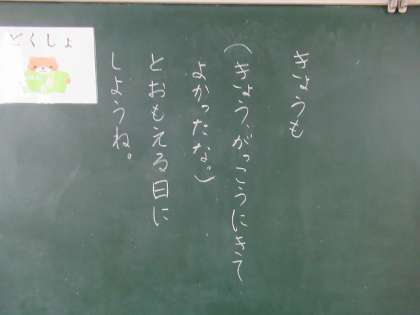 きょうも
(きょう、がっこうにきて
よかったなっ)
とおもえる日に
しようね。
どくしょ